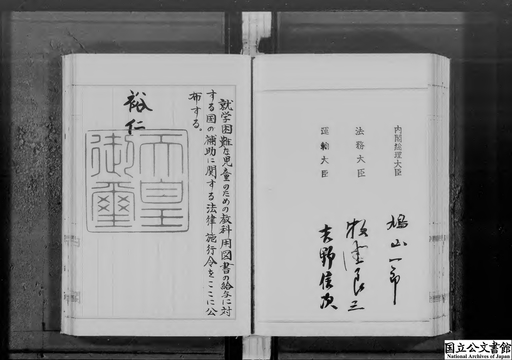 内閣総理大臣
鳩山一郎
法務大臣
牧野良三
運輸大臣
吉野信次
就学困難な児童のための教科用図書の給与に対
する国の補助に関する法律施行令をここに公
布する。
裕仁
天皇
御璽
国立公文書館
National Archives of Japan